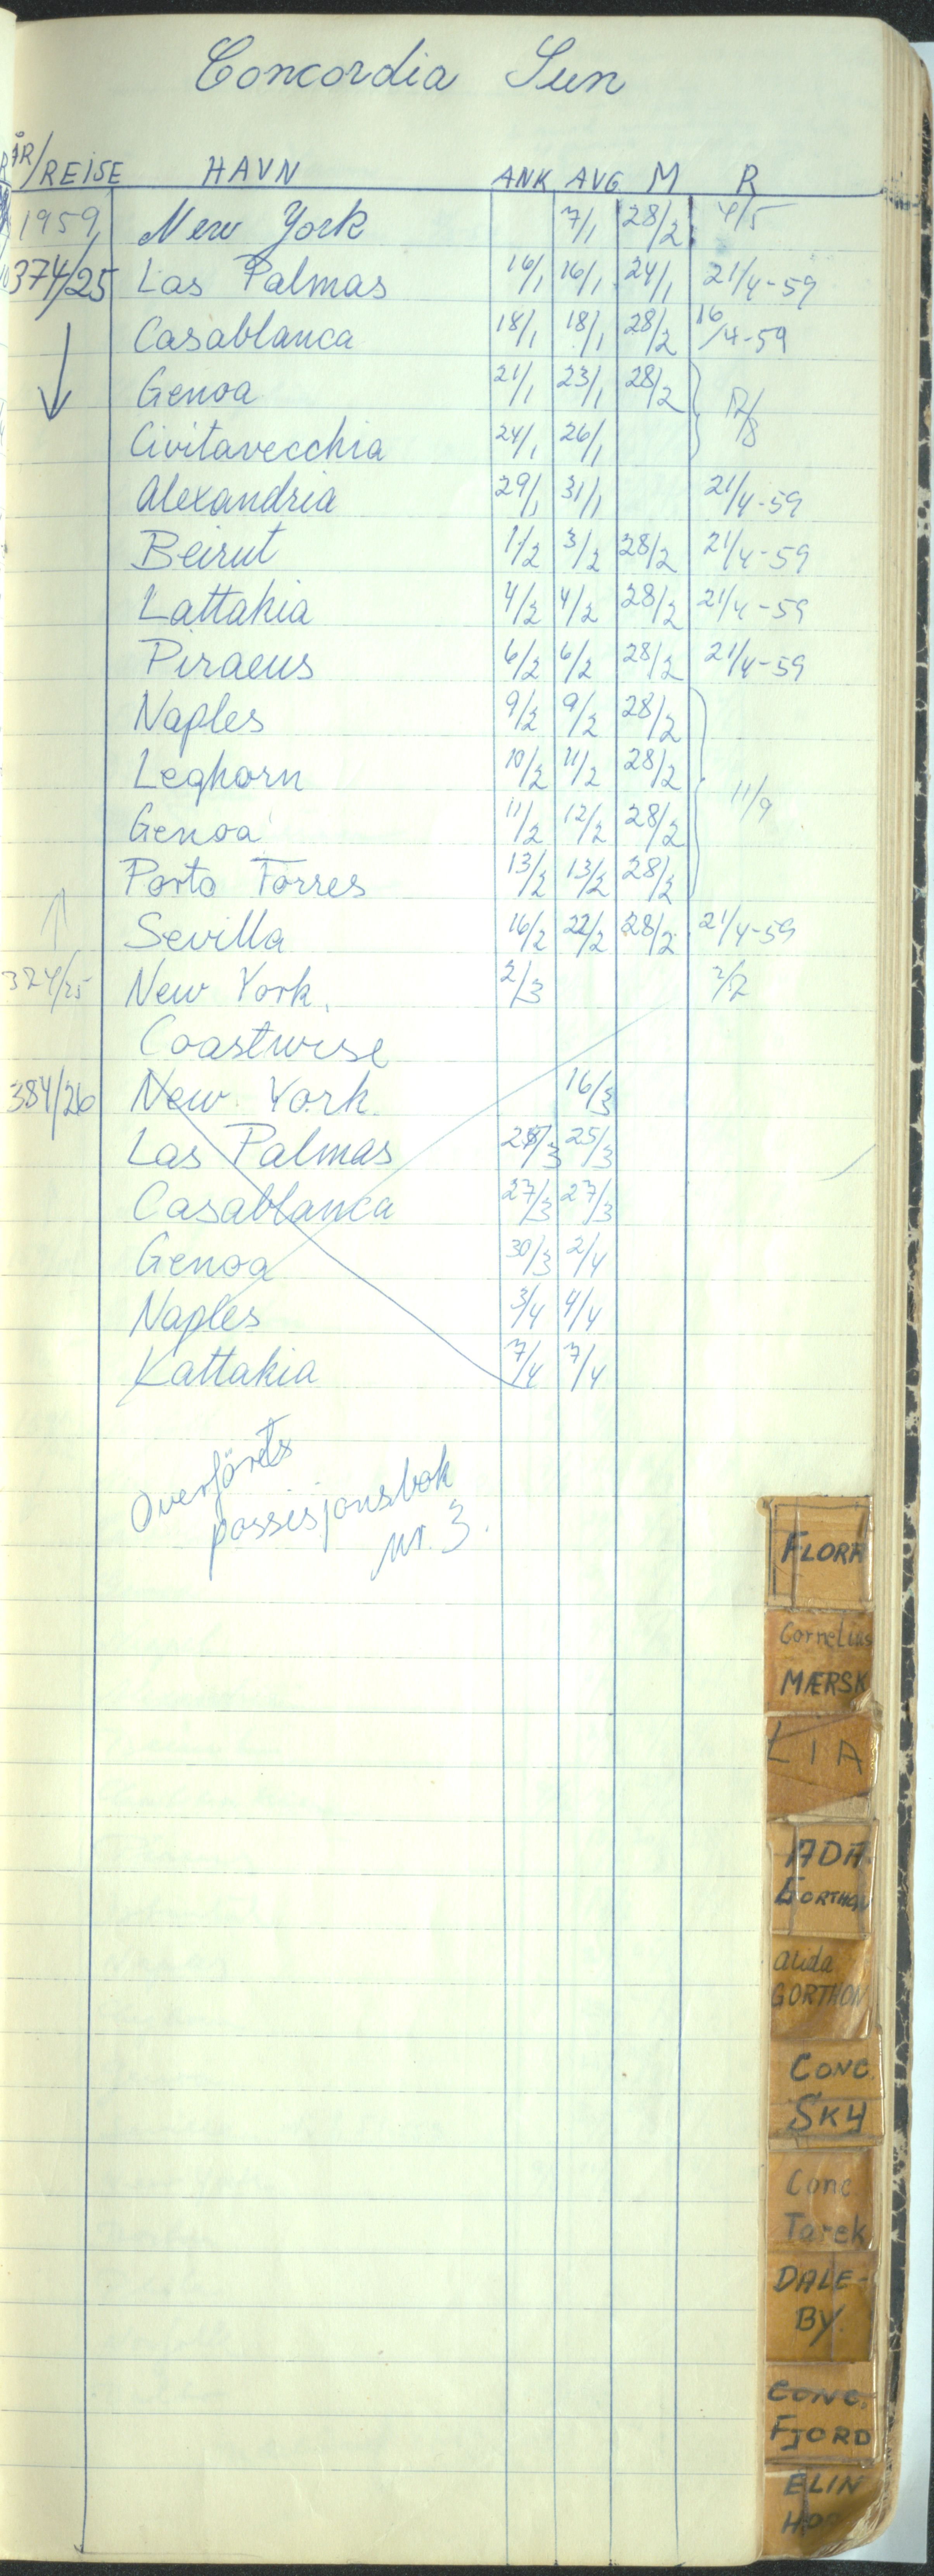 Concordia Sun
ÅR/REISE HAVN ANK AVG M R
1959 New York 7/1 28/2 4/5
374/25 Las Palmas 16/1 16/1 24/1 21/4-59
Casablanca 18/1 18/1 28/2 16/4-59
Genoa 21/1 23/1 28/2
Civitavecchia 24/1 26/1
Alexandria 29/1 31/1 21/4-59
Beirut 1/2 3/2 28/2 21/4-59
Lattakia 4/2 4/2 28/2 21/4-59
Piraeus 6/2 6/2 28/2 21/4-59
Naples 9/2 9/2 28/2
Leghorn 10/2 11/2 28/2 11/9
Genoa 11/2 12/2 28/2
Porto Torres 13/2 13/2 28/2
Sevilla 16/2 22/2 28/2 21/4-59
374/25 New York. 2/3
Coastwise
384/26 New York. 16/3
Las Palmas 25/3 25/3
Casablanca 27/3 27/3
Genoa 30/3 2/4
Naples 3/4 4/4
Lattakia 7/4 7/4
Overførets
possisjonsbok
nr. 3.
FLORA
Cornelius
MÆRSK
LIA
ADA
GORTHON
Alida
GORTHON
CONC.
SKY
Conc.
Tarek
DALE-
BY.
CONC.
FJORD
ELIN